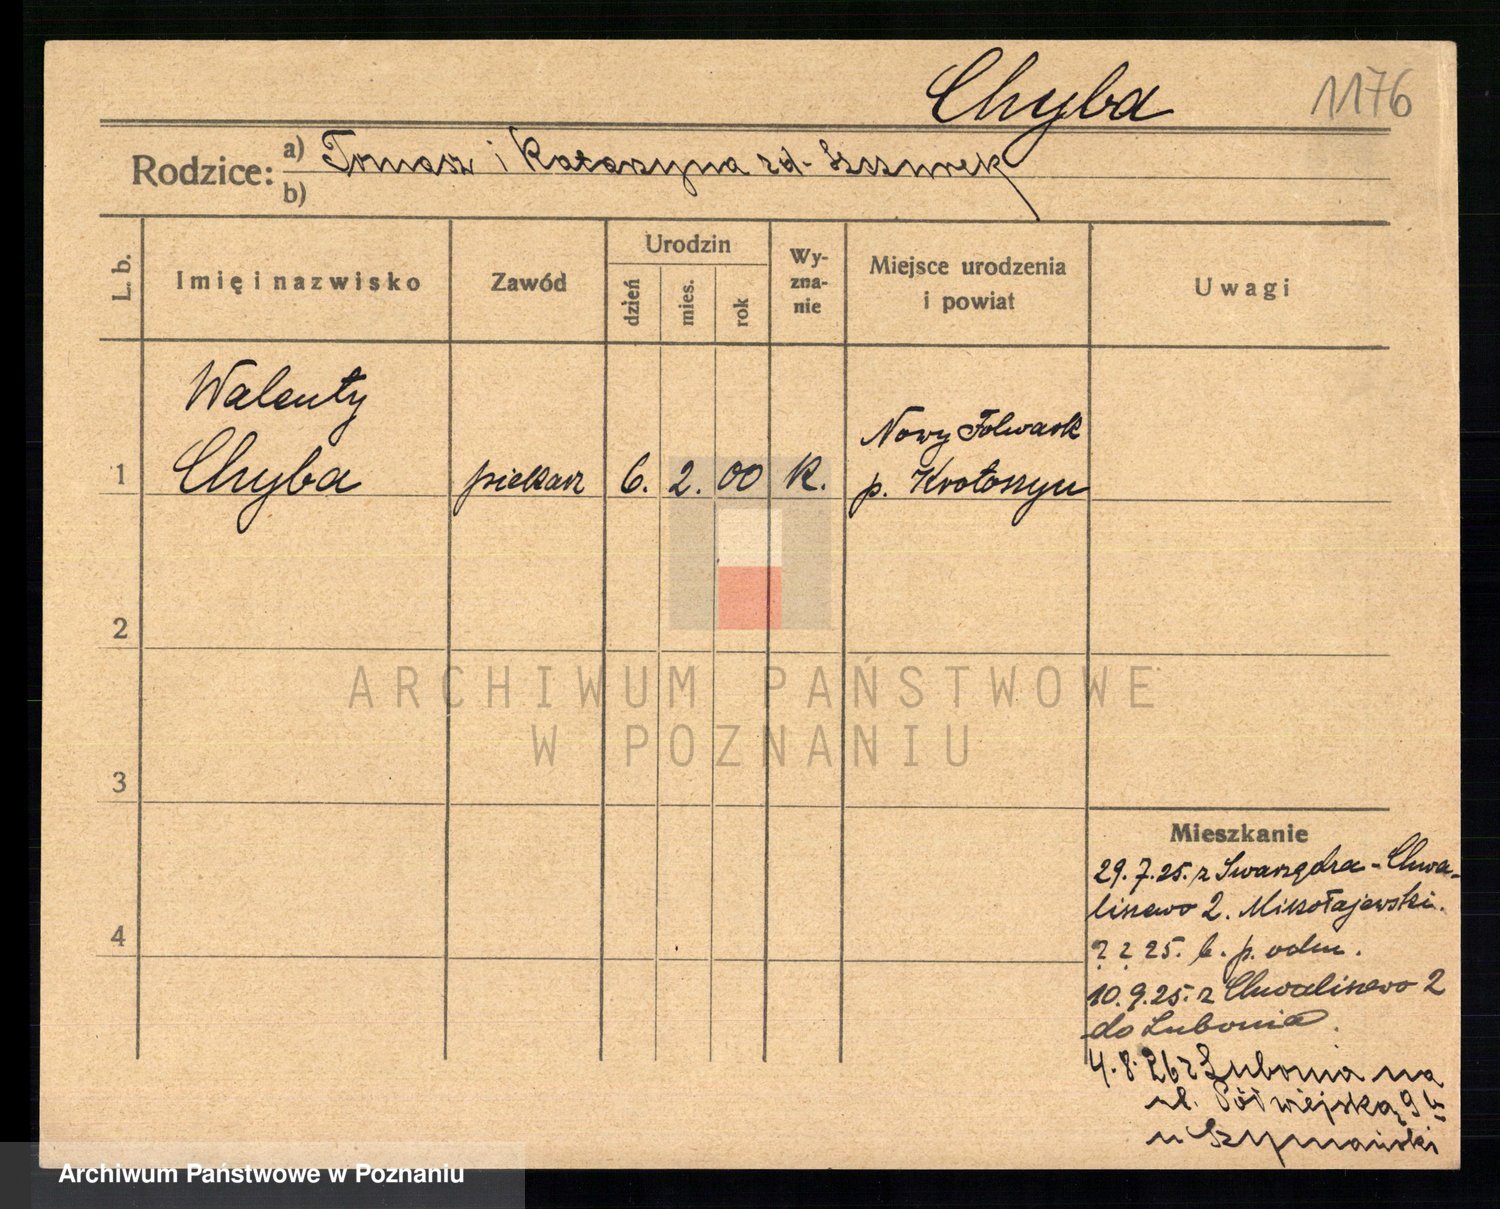 Chyba
1176
Rodzice: a) Tomasz i Katarzyna zd. Szczurek
b)
L. b.
Imię i nazwisko
Zawód
Urodzin
dzień
mies.
rok
Wy-
zna-
nie
Miejsce urodzenia
i powiat
Uwagi
Walenty
Chyba
1
piekarz
6. 2. 00
K.
Nowy Folwark
p. Krotoszyn
2
ARCHIWUM PAŃSTWOWE
W POZNANIU
3
4
Mieszkanie
29.7.25. z Swarzędza - Chwa-
liszewo 2. Mikołajewski.
? ? 25. b. p. odm.
10.9.25. z Chwaliszewo 2
do Lubonia.
4.8.26 z Lubonia na
ul. Półwiejską 9
u Szymański
Archiwum Państwowe w Poznaniu